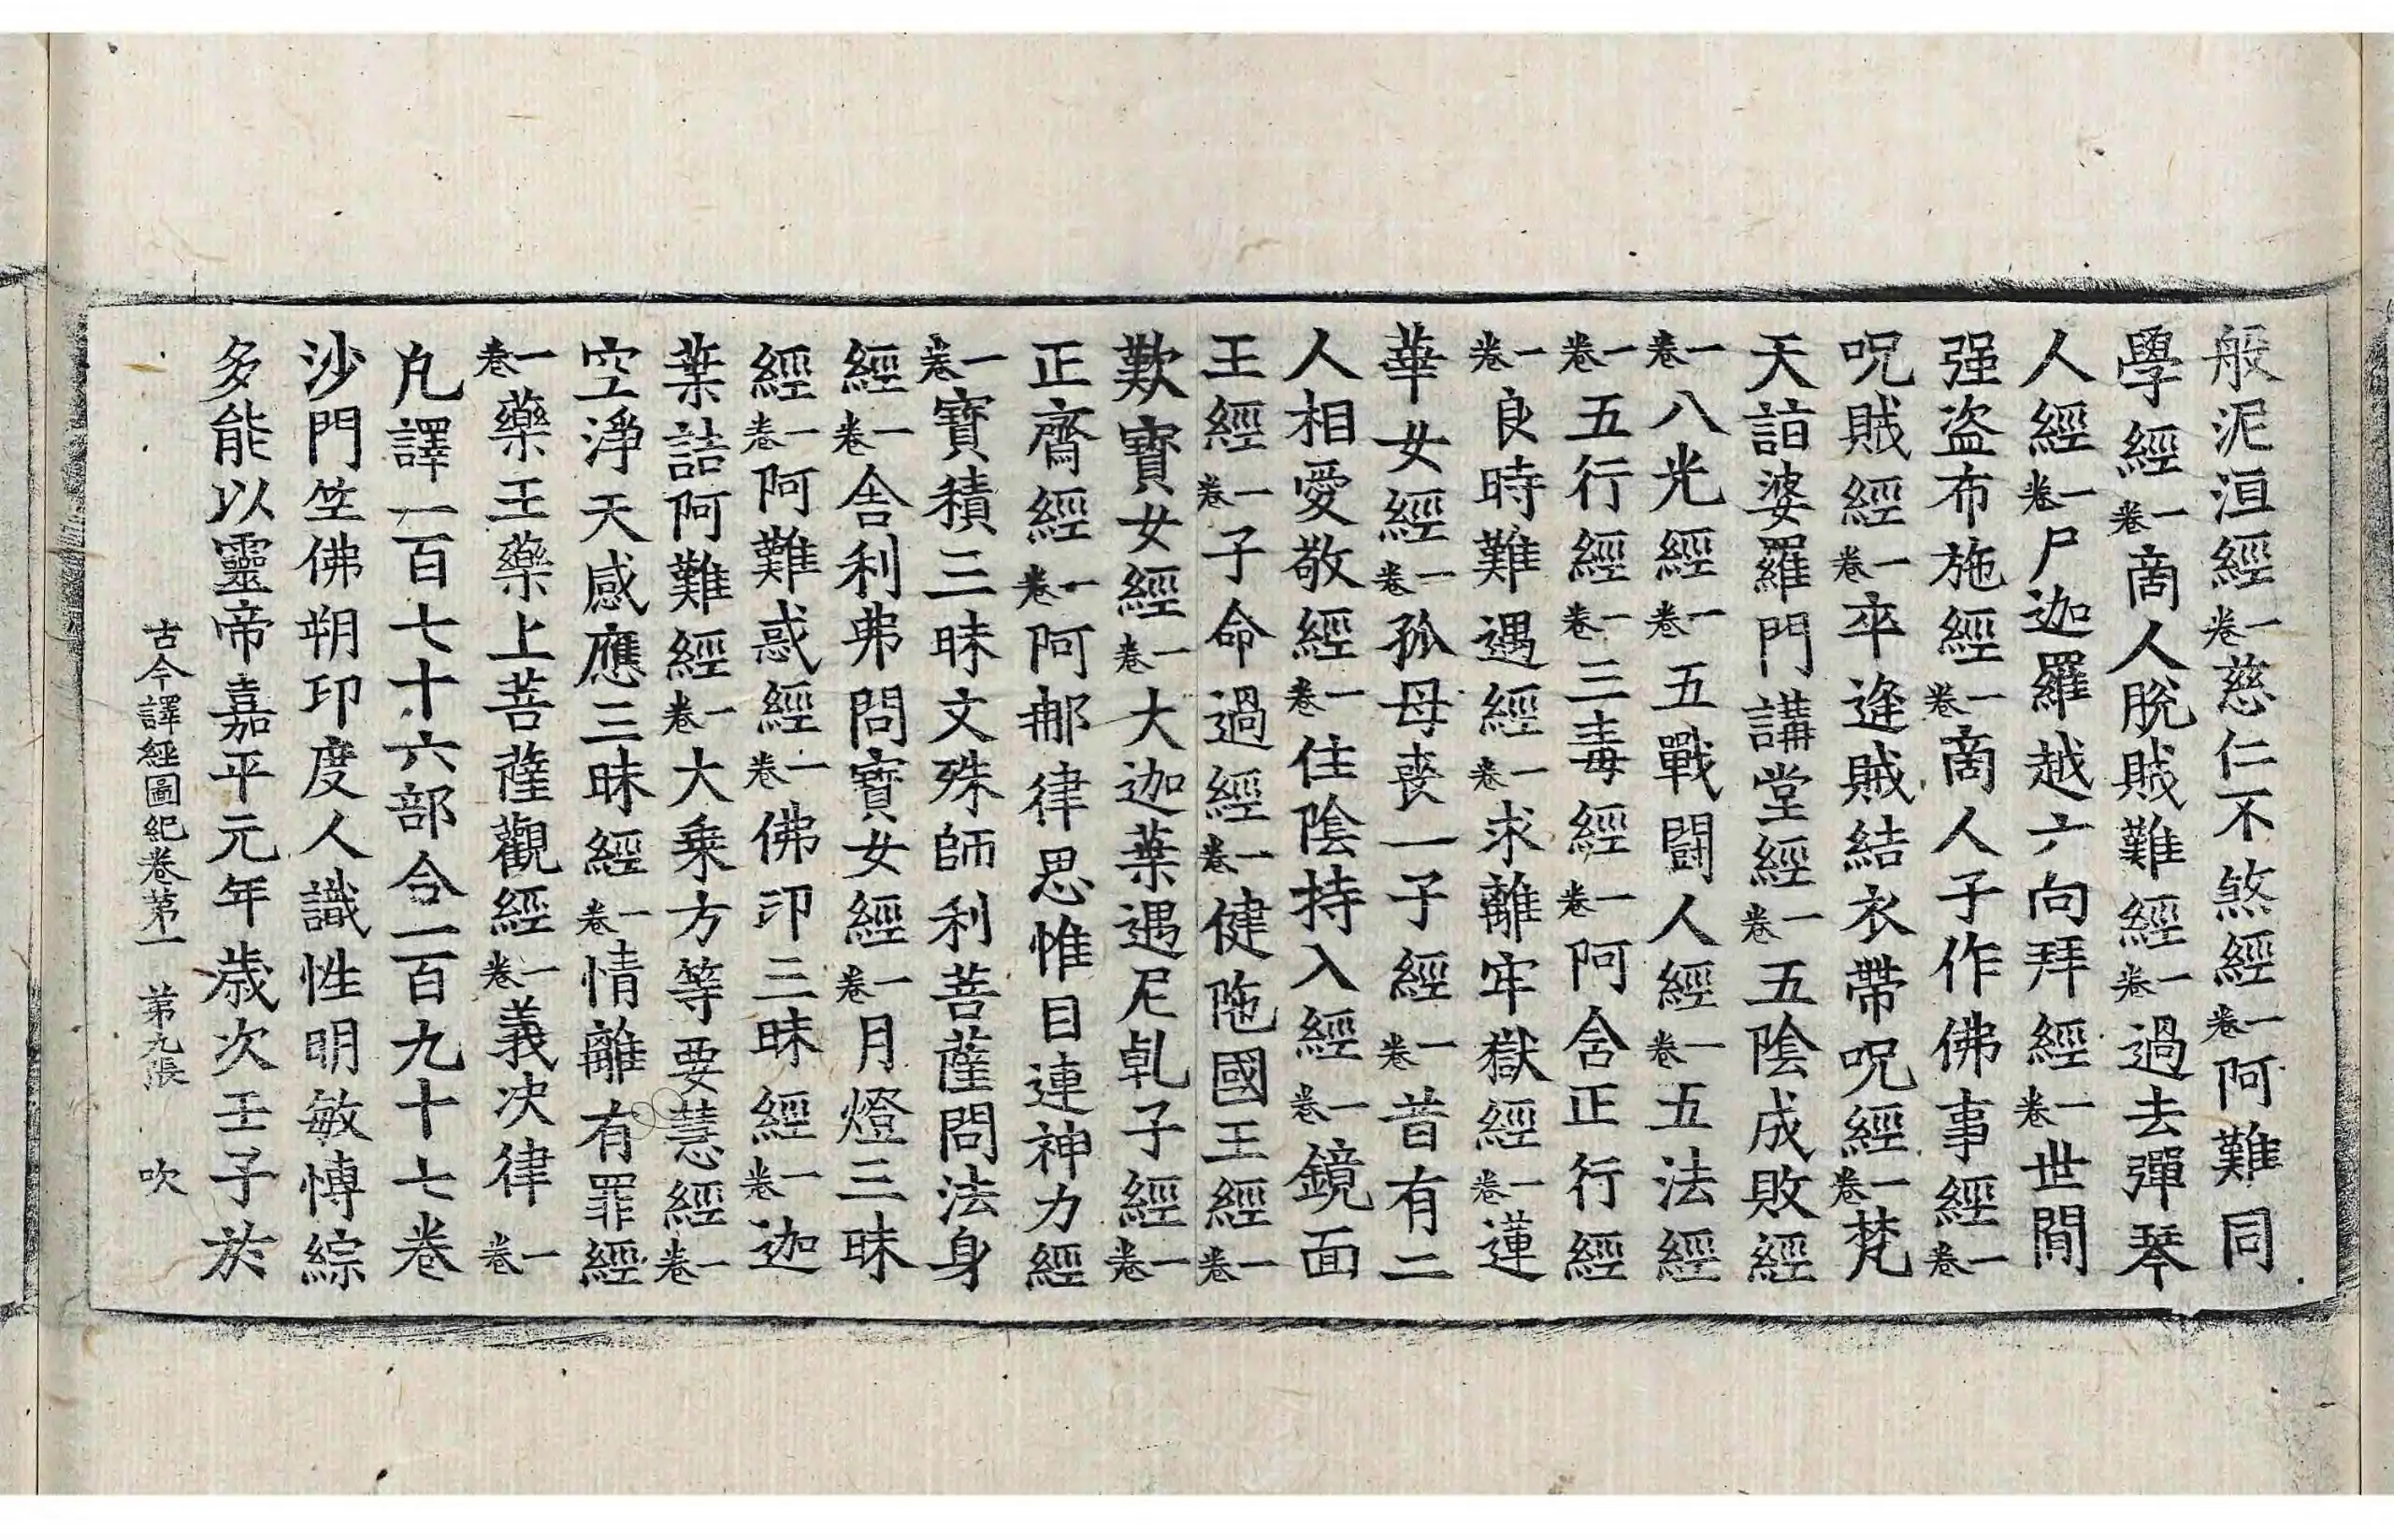 般泥洹經一卷慈仁不煞經一卷阿難同
學經一卷商人脫賊難經一卷過去彈琴
人經一卷尸迦羅越六向拜經一卷世間
强盗布施經一卷商人子作佛事經一卷
呪賊經一卷卒逢賊結衣帶呪經一卷梵
天詣婆羅門講堂經一卷五陰成敗經
一卷八光經一卷五戰鬪人經一卷五法經
一卷五行經一卷三毒經一卷阿含正行經
一卷良時難遇經一卷求離牢獄經一卷蓮
華女經一卷孤母喪一子經一卷昔有二
人相愛敬經一卷住陰持入經一卷鏡面
王經一卷子命過經一卷健陁國王經一卷
歎寶女經一卷大迦葉遇尼乹子經一卷
正齋經一卷阿那律思惟目連神力經
一卷寶積三昧文殊師利菩薩問法身
經一卷舍利弗問寶女經一卷月燈三昧
經一卷阿難惑經一卷佛印三昧經一卷迦
葉詰阿難經一卷大乗方等要慧經一卷
空淨天感應三昧經一卷情離有罪經
一卷藥王藥上菩薩觀經一卷義决律一卷
凡譯一百七十六部合一百九十七卷
沙門竺佛朔印度人識性明敏愽綜
多能以靈帝嘉平元年歲次壬子於
古今譯經圖紀卷苐一　苐九張　吹